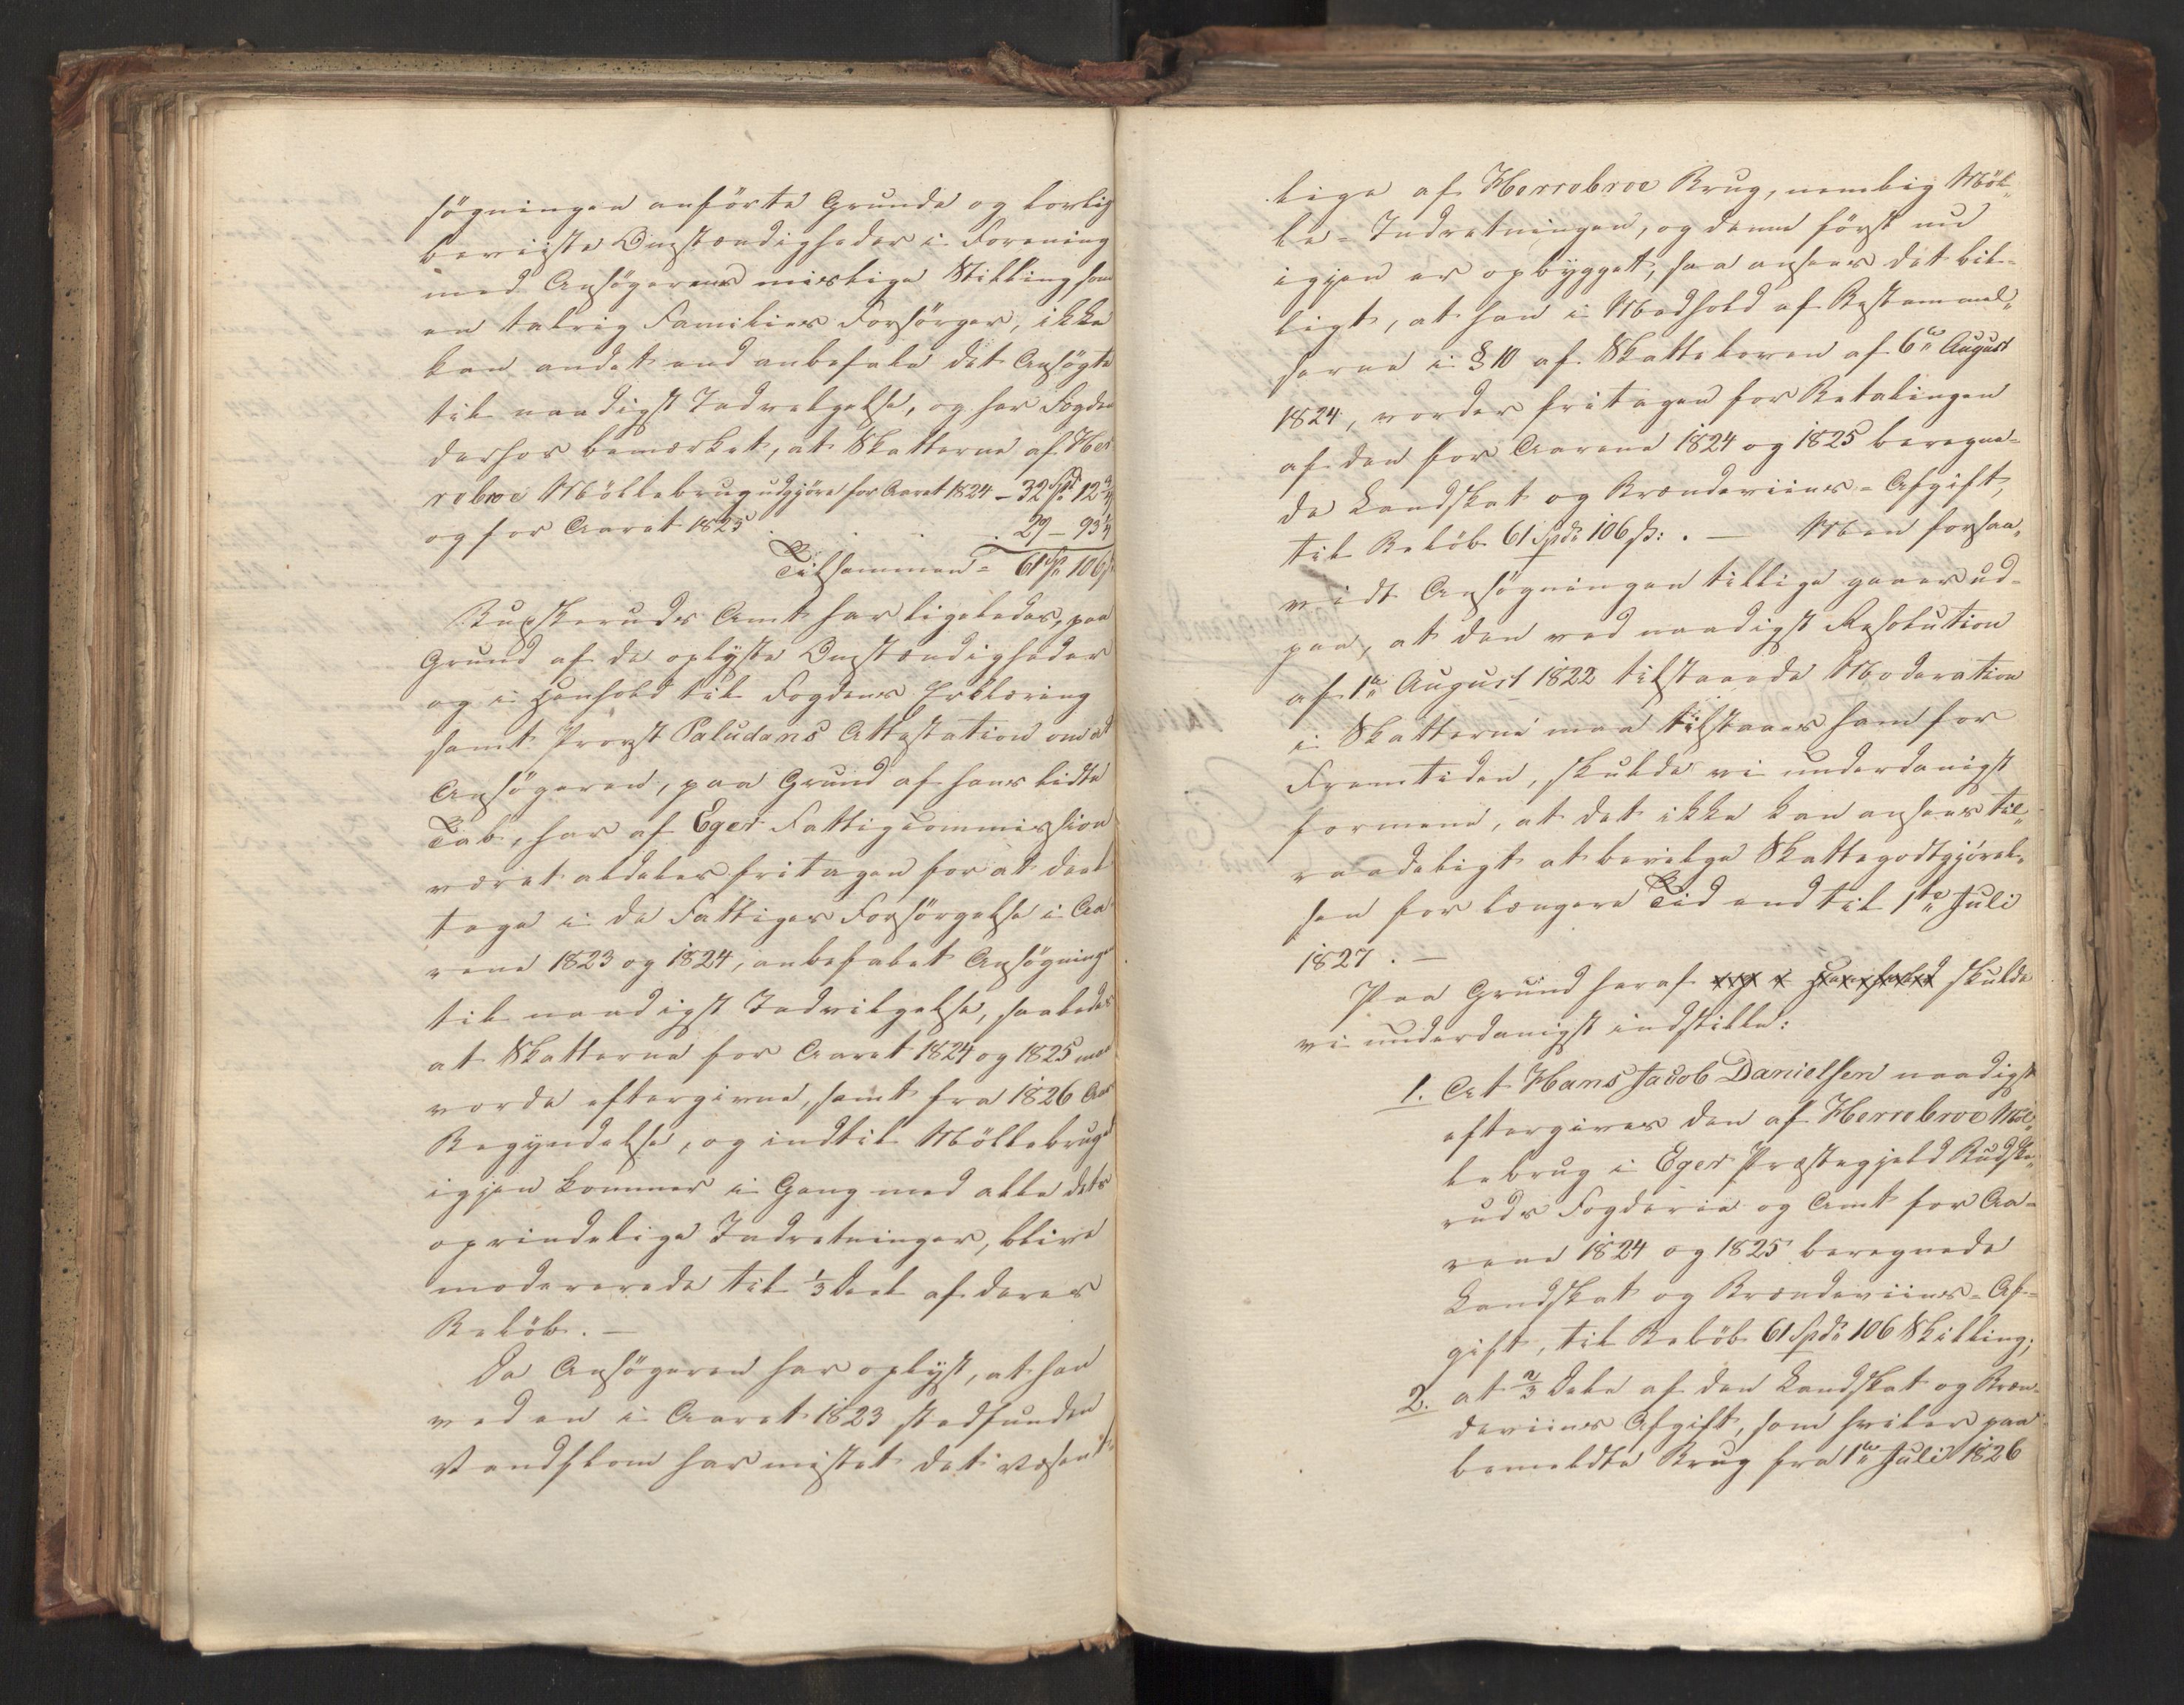 søgningen anførte Grunde og lovlig
beviiste Omstændigheder i Forening
med Ansøgerens mislige Stilling som
en talrig Families Forsørger, ikke
kan andet end anbefale det Ansøgte
til naadigst Indvilgelse, og har Fogden
derhos bemærket, at Skatterne af Her
rebroe Möllebrug udgjöre for Aaret 1824 - 32 Spd 12 3/4
og for Aaret 1825 . . . 29 - 93 1/4
Tilsammen = 61 Spd 106 s
Buskeruds Amt har ligeledes, paa
Grund af de oplyste Omstændigheder
og i Henhold til Fogdens Erklæring
samt Provst Paludans Attestation om at
Ansøgeren, paa Grund af hans lidte
Tab, har af Eger Fattigcommission
været aldeles fritagen for at deel
tage i de Fattiges Forsørgelse i Aa
rene 1823 og 1824, anbefalet Ansøgningen
til naadigst Indvilgelse, saaledes
at Skatterne for Aaret 1824 og 1825 maa
vorde eftergivne, samt fra 1826 Aars
Begyndelse, og indtil Möllebruget
igjen kommer i Gang med alle dets
oprindelige Indretninger, blive
modererede til 1/3 Deel af deres
Beløb. —
Da Ansøgeren har oplyst, at han
ved en i Aaret 1823 stedfunden
Vandflom har mistet det væsent
lige af Herrebroe Brug, nemlig Möl„
le=Indretningen, og denne först nu
igjen er opbygget, saa ansees det bil=
ligt, at han i Medhold af Bestemmel„
serne i § 10 af Skatteloven af 6te August
1824, vorder fritagen for Betalingen
af den for Aarene 1824 og 1825 beregne=
de Landskat og Brændeviins=Afgift,
til Beløb 61 Spd. 106 s: . — Men forsaa„
vidt Ansøgningen tillige gaaer ud=
paa, at den ved naadigst Resolution
af 1te August 1822 tilstaaede Moderation
i Skatterne maa tilstaaes ham for
Fremtiden, skulde vi underdanigst
formene, at det ikke kan ansees til„
raadeligt at bevilge Skattegodtgjörel„
sen for længere Tid end til 1te Juli
1827. —
Paa Grund heraf og i Henhold skulde
vi underdanigst indstille:
1. At Hans Jacob Danielsen naadigst
eftergives den af Herrebroe Möl„
lebrug i Eger Præstegjeld Budske„
ruds Fogderie og Amt for Aa=
rene 1824 og 1825 beregnede
Landskat og Brændeviins=Af=
gift, til Beløb 61 Spd. 106 Skilling;
2. at 2/3 Dele af den Landskat og Bræn„
deviins Afgift, som hviler paa
bemeldte Brug fra 1te Juli 1826